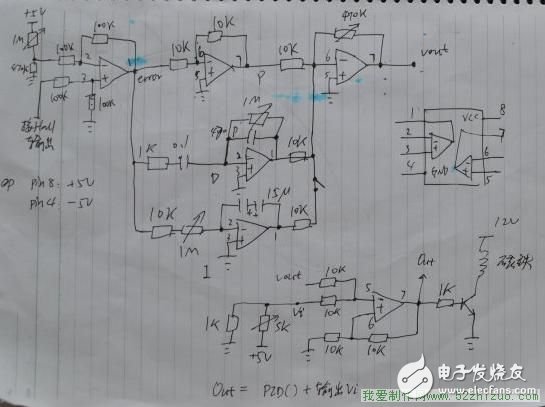 +5V
1M
100K
100K
47K
100K
100K
接Hall
输出
2
3
error
10K
10K
6
5
7
P
10K
470K
6
5
7
vout
1K
0.1
D
P
1M
2
3
1
10K
10K
1M
I
15μ
2
3
1
10K
op pin 8: +5V
pin 4: -5V
1
2
3
4
VCC
GND
8
7
6
5
vout
10K
Vi
10K
1K
5K
+5V
10K
10K
5
6
7
Out
1K
12V
磁铁
Out = PID() + 输出Vi
电子发烧友
www.elecfans.com
我爱制作网 www.52zhizuo.com